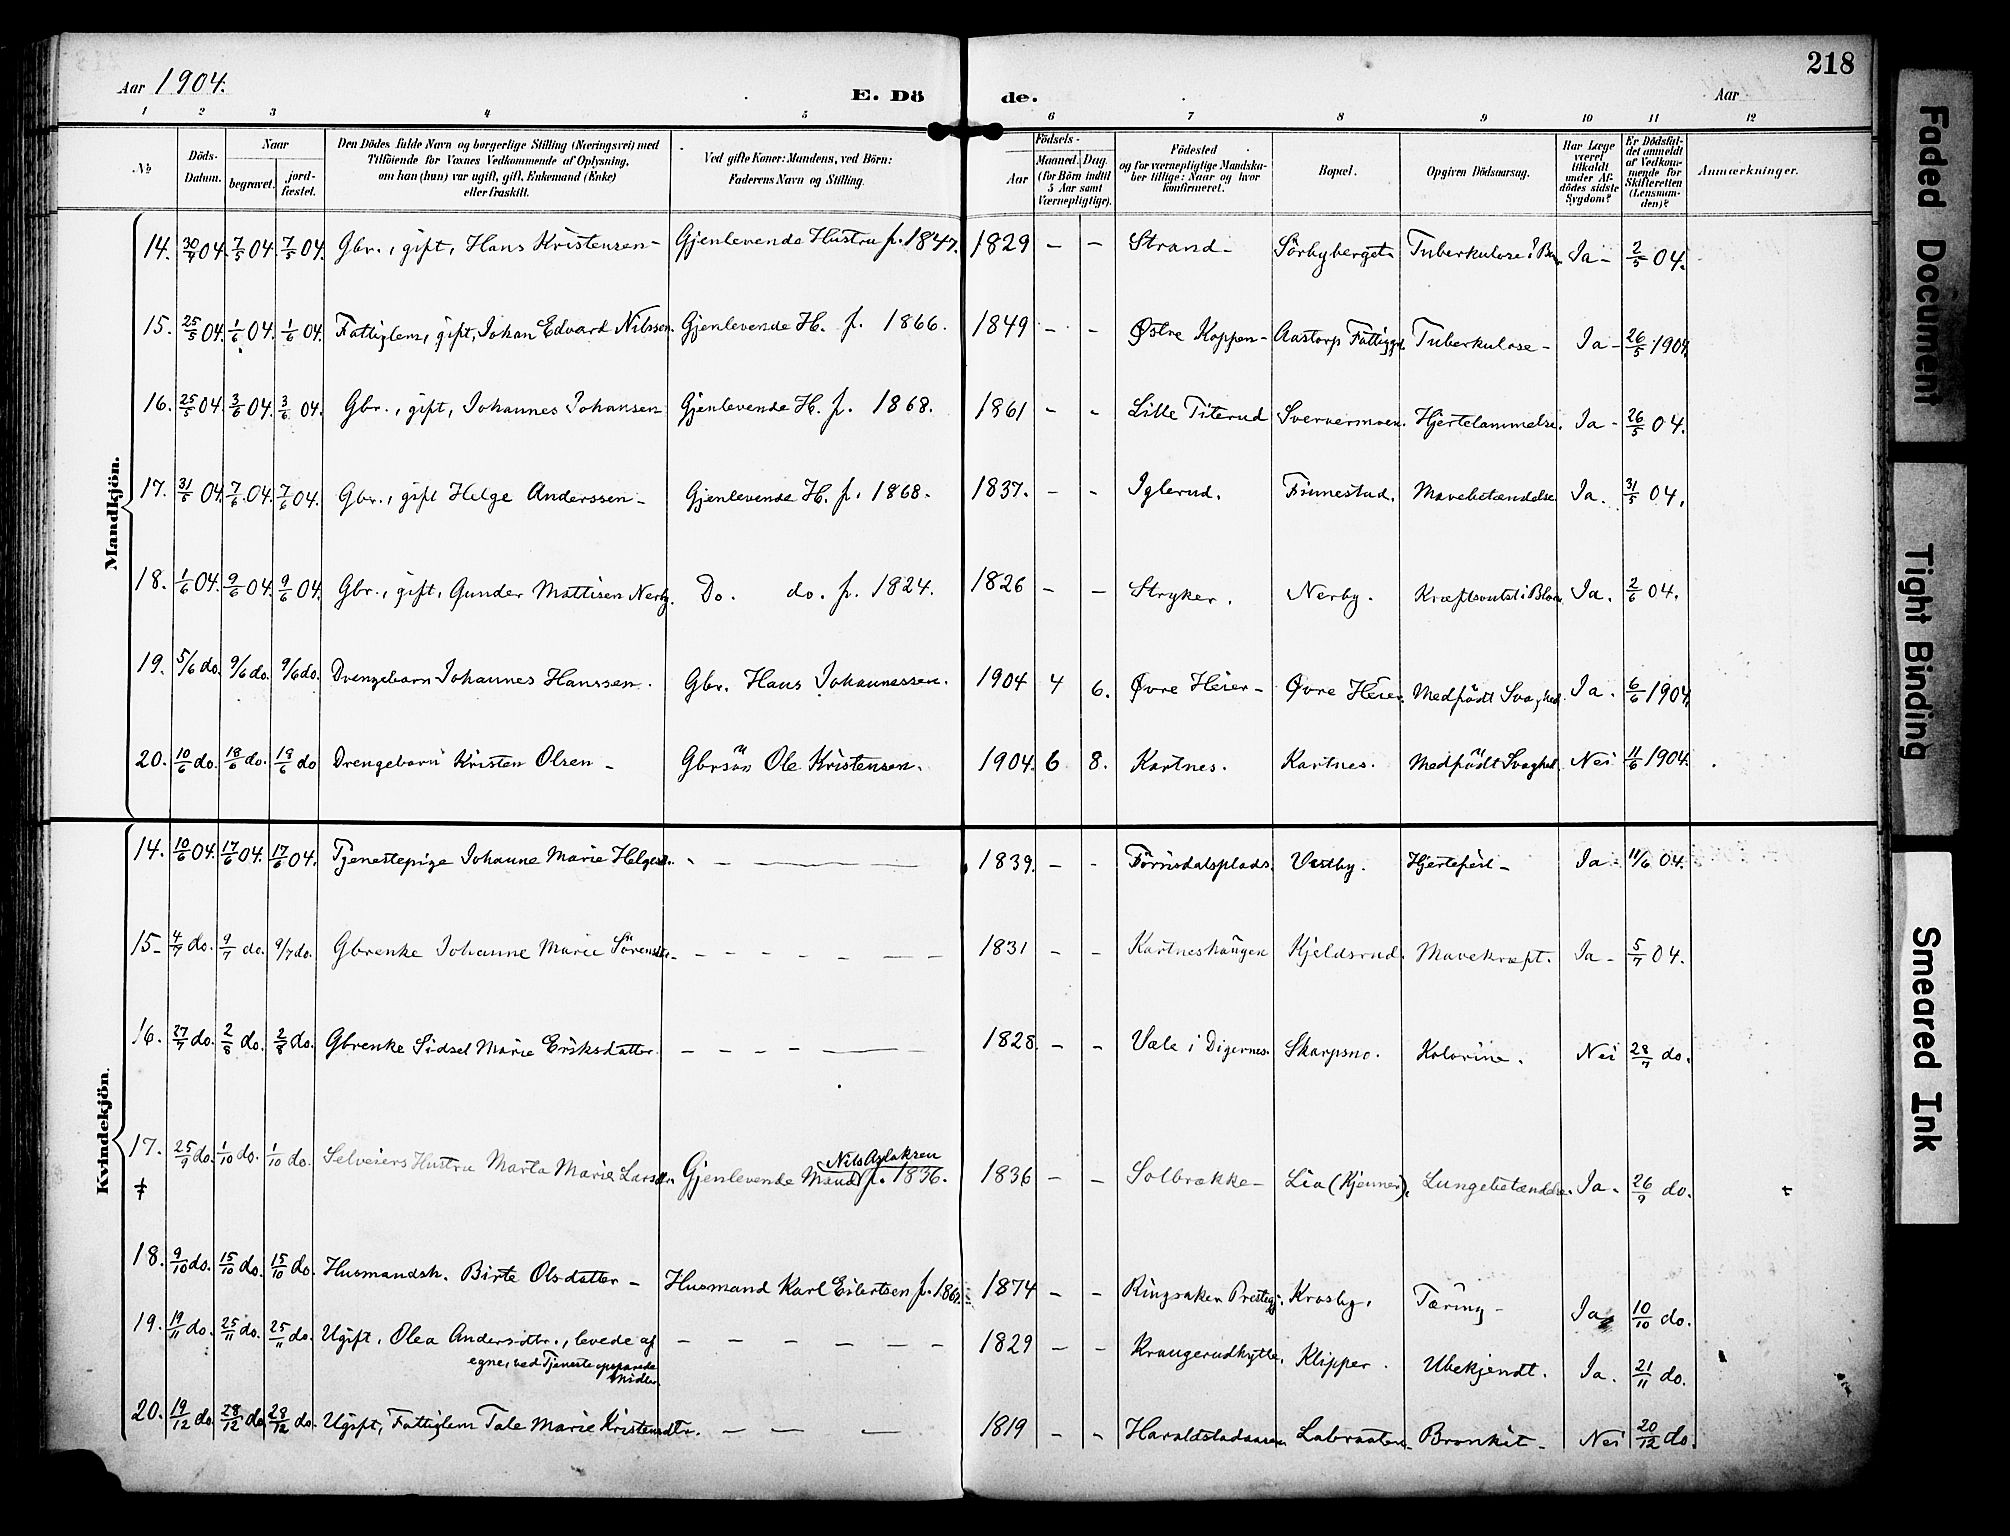 218
Aar 1904.
E. Döde.
Aar
1 2 3 4 5 6 7 8 9 10 11 12
No
Döds-Datum.
Naar
begravet.
jord-fæstet.
Den Dödes fulde Navn og borgerlige Stilling (Næringsvei) med
Tilföiende for Voxnes Vedkommende af Oplysning,
om han (hun) var ugift, gift, Enkemand (Enke)
eller fraskilt.
Ved gifte Koner: Mandens, ved Börn:
Faderens Navn og Stilling.
Födsels-
Aar
Maaned. Dag.
(for Börn indtil
5 Aar samt
Værnepligtige).
Födested
og for værnepligtige Mandska-
ber tillige: Naar og hvor
konfirmeret.
Bopæl.
Opgiven Dödsaarsag.
Har Læge
været
tilkaldt
under Af-
dödes sidste
Sygdom?
Er Dödsfal-
det anmeldt
af Vedkom-
mende for
Skifteretten
(Lensman-
den)?
Anmærkninger.
Mandkjön.
14. 30/4 04. 7/5 04. 7/5 04. Gbr., gift, Hans Kristensen - Gjenlevende Hustru f. 1847. 1829 - - Strand - Sörbyberget - Tuberkulose i Ja - 2/5 04.
15. 25/5 04. 1/6 04. 1/6 04. Fattiglem, gift, Johan Edvard Nilssen. Gjenlevende H. f. 1866. 1849 - - Østre Koppen - Aastorp Fattiggd. Tuberkulose - Ja - 26/5 1904.
16. 25/5 04. 3/6 04. 3/6 04. Gbr., gift, Johannes Johansen Gjenlevende H. f. 1868. 1861 - - Lille Titerud Sververmoen. Hjertelammelse. Ja - 26/5 04.
17. 31/5 04. 7/6 04. 7/6 04. Gbr., gift Helge Anderssen - Gjenlevende H. f. 1868. 1837. - - Iglerud. Finnestad. Mavebetændelse Ja. 31/5 04.
18. 1/6 04. 9/6 04. 9/6 04. Gbr., gift, Gunder Mattisen Nerby. Do. do. f. 1824. 1826 - - Stryker. Nerby. Kræftsvulst i Ja. 2/6 04.
19. 5/6 do. 9/6 do. 9/6 do. Drengebarn Johannes Hanssen. Gbr. Hans Johannessen. 1904 4 6. Øvre Heier - Øvre Heier. Medfödt Svaghed. Ja. 6/6 1904.
20. 10/6 do. 18/6 do. 18/6 do Drengebarn Kristen Olsen - Gbrsön Ole Kristensen. 1904. 6 8. Kartnes. Kartnes. Medfödt Svaghed. Nei 11/6 1904.
Kvindekjön.
14. 10/6 04. 17/6 04. 17/6 04. Tjenestepige Johanne Marie Helgesd. - - - 1839. - - Förrisdalsplads. Vestby. Hjertefeil - Ja - 11/6 04.
15 - 4/7 do. 9/7 do. 9/7 do. Gbrenke Johanne Marie Sörensdtr. - - - - - - - 1831 - - Kartneshaugen Kjeldsrud. Mavekræft. Ja - 5/7 04.
16. 27/7 do. 2/8 do. 2/8 do. Gbrenke Sidsel Marie Eriksdatter. - - - - - - 1828. - - Vale i Digernes. Skarpsno. Kolerine. Nei 28/7 do.
17. 25/9 do. 1/10 do. 1/10 do. Selveiers Hustru Marta Marie Larsdtr. Gjenlevende Mand Nils Aslaksen f. 1836. 1836 - - Solbrække - Lia (Kjenner), Lungebetændelse. Ja. 26/9 do.
18. 9/10 do. 15/10 do. 15/10 do. Husmandsh. Birte Olsdatter - Husmand Karl Eilertsen f. 1862. 1874 - - Ringsaker Prestegj. Krosby. Tæring - Ja 10/10 do.
19. 19/11 do. 25/11 do. 25/11 do. Ugift, Olea Andersdtr., levede af - - - - - 1829 - - Kraugerudhytte. Klipper. Ubekjendt. Ja. 21/11 do.
egne, ved Tjeneste opsparede
Midler.
20. 19/12 do. 28/12 do 28/12 do. Ugift, Fattiglem Tale Marie Kristensdtr. - - - 1819 - - Haraldstadaasen Labraaten - Bronkit - Nei 20/12 do.
Faded Document
Tight Binding
Smeared Ink